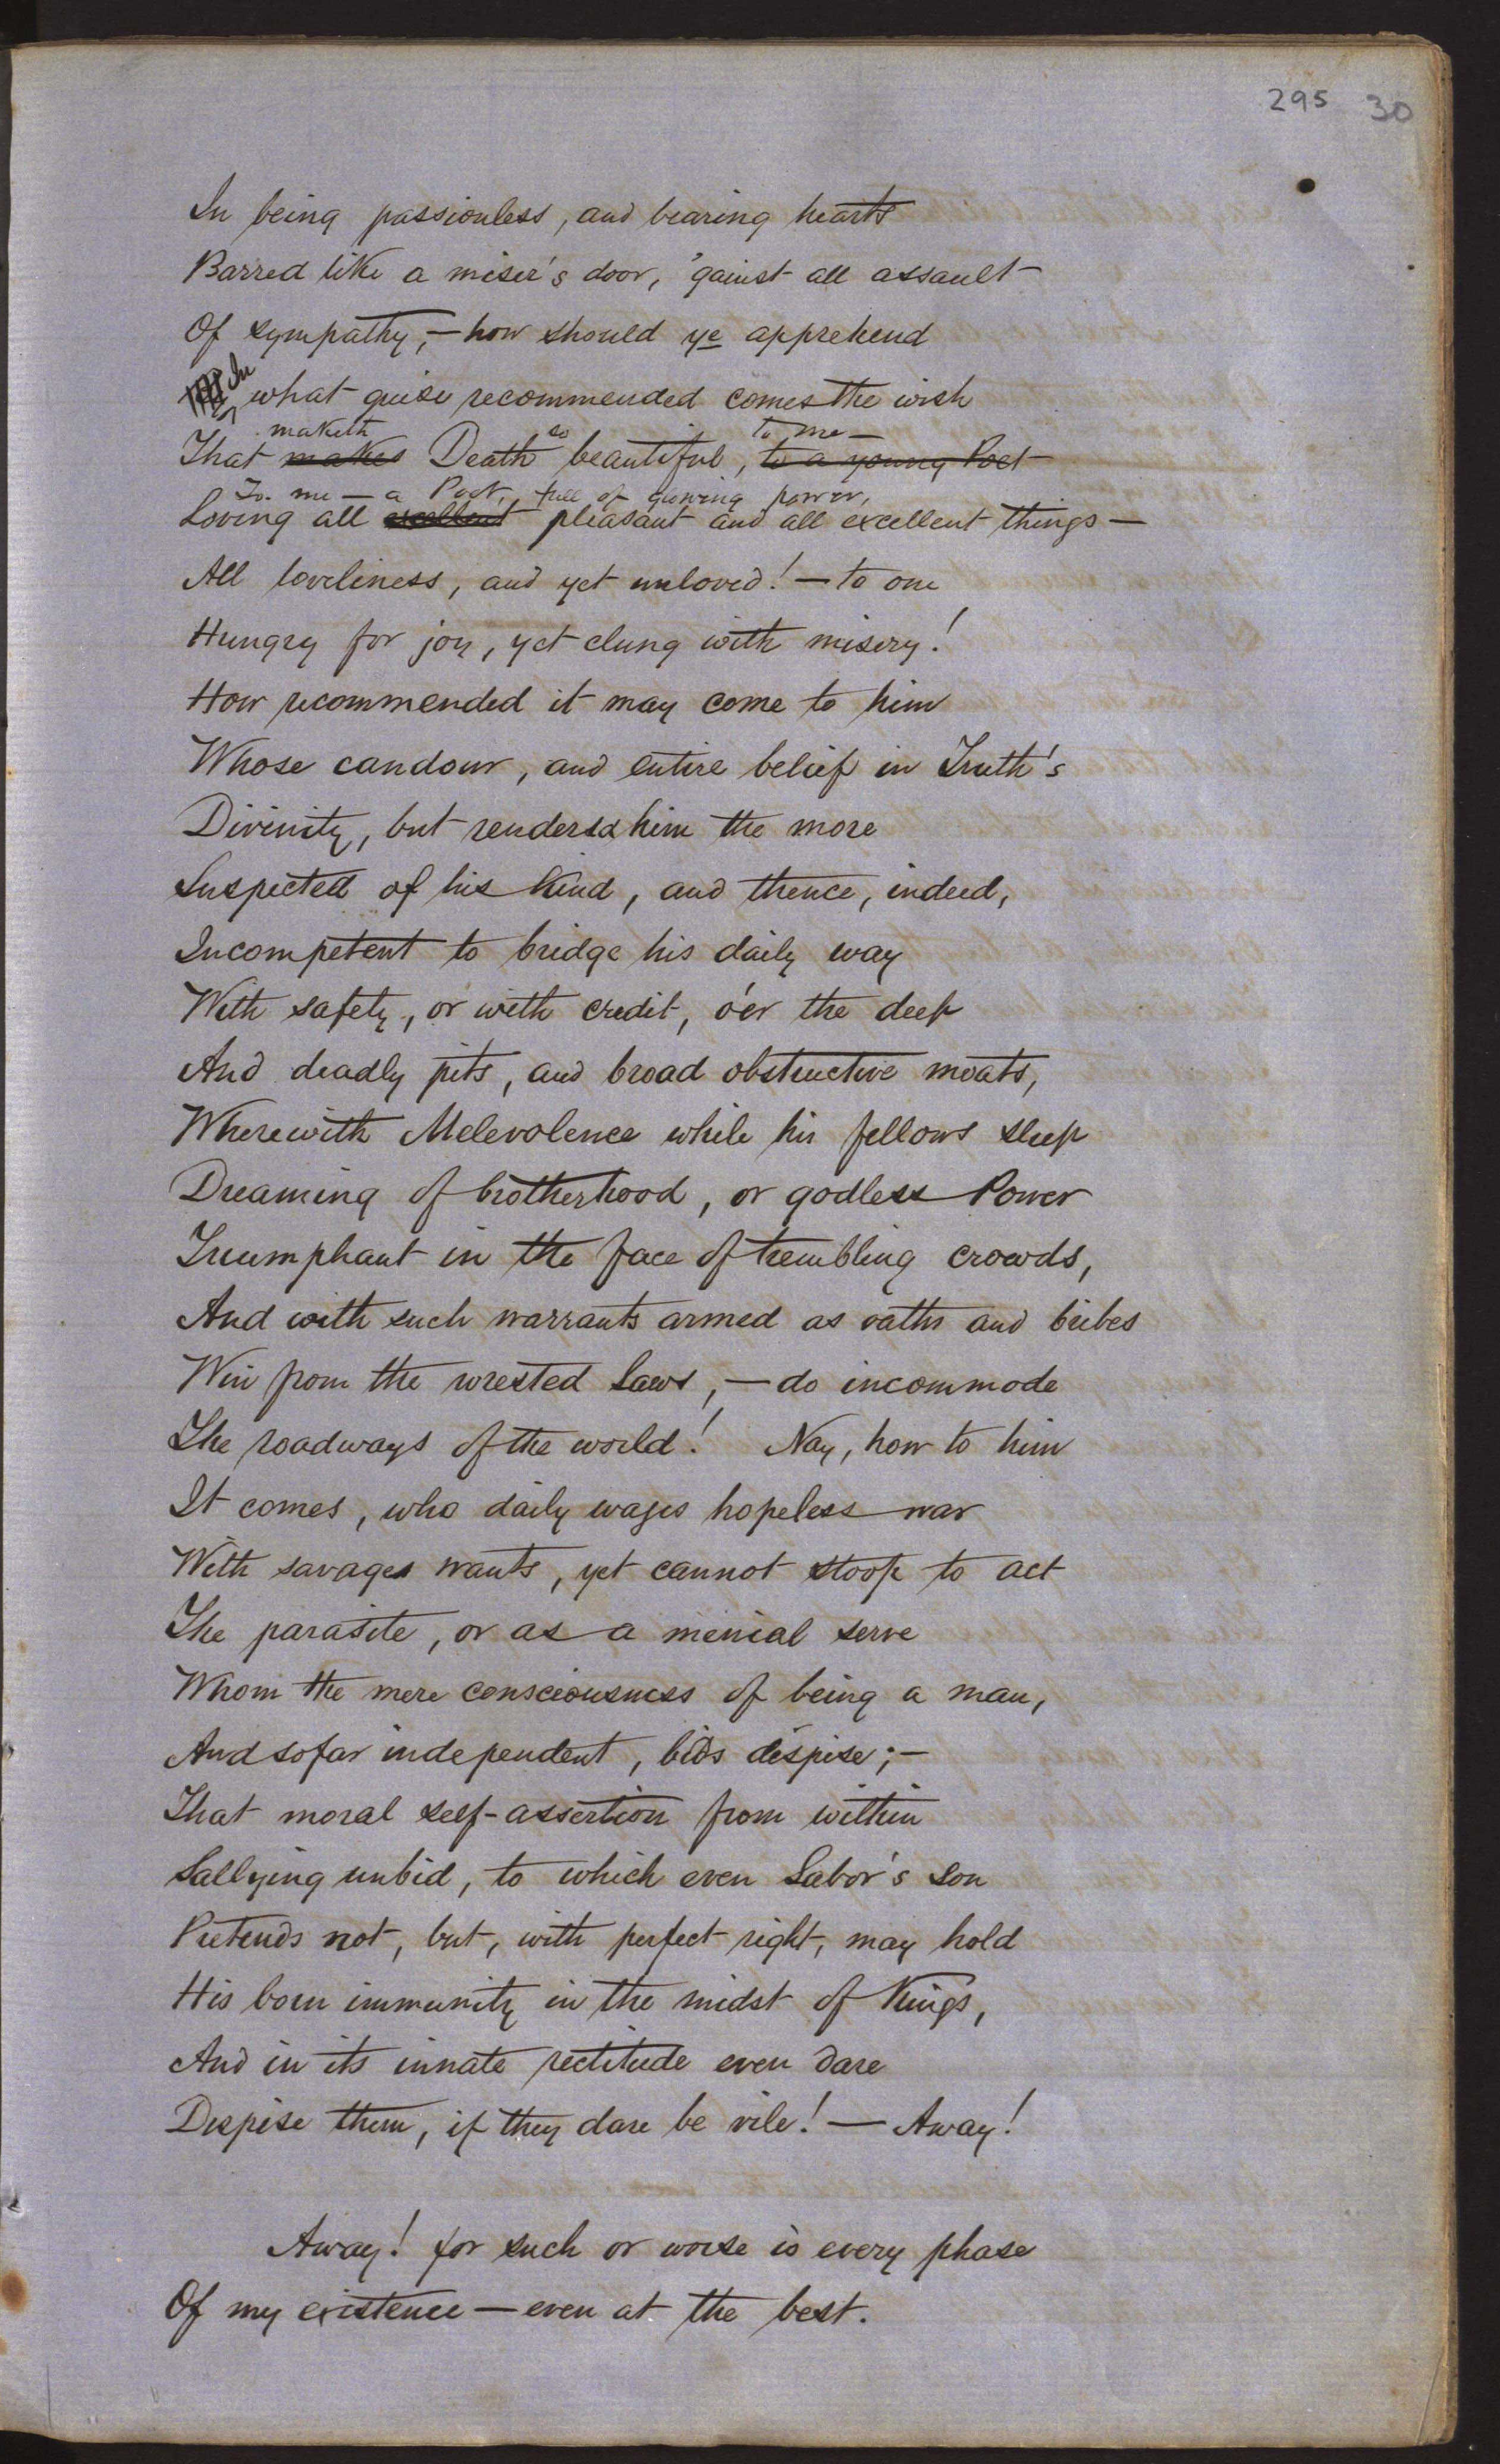 295 30
In being passionless, and bearing hearts
Barred like a miser's door, 'gainst all assault
Of sympathy, — how should ye apprehend
In what guise recommended comes the wish
maketh so to me —
That makes Death beautiful, to a young Poet
To me — a Poet, full of glowing power,
Loving all excellent pleasant and all excellent things —
All loveliness, and yet unloved! — to one
Hungry for joy, yet clung with misery!
How recommended it may come to him
Whose candour, and entire belief in Truth's
Divinity, but renders him the more
Suspected of his kind, and thence, indeed,
Incompetent to bridge his daily way
With safety, or with credit, o'er the deep
And deadly pits, and broad obstructive moats,
Wherewith Melevolence while his fellows sleep
Dreaming of brotherhood, or godless Power
Triumphant in the face of trembling crowds,
And with such warrants armed as oaths and bribes
Win from the wrested Laws, — do incommode
The roadways of the world! Nay, how to him
It comes, who daily wages hopeless war
With savages wants, yet cannot stoop to act
The parasite, or as a menial serve
Whom the mere consciousness of being a man,
And so far independent, bids despise; —
That moral self-assertion from within
Sallying unbid, to which even Labor's son
Pretends not, but, with perfect right, may hold
His born immunity in the midst of Kings,
And in its innate rectitude even dare
Despise them, if they dare be vile! — Away!
Away! for such or worse is every phase
Of my existence — even at the best.